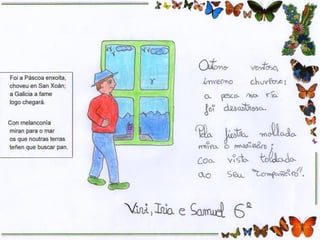 Foi a Páscoa enxoita,
choveu en San Xoán;
a Galicia a fame
logo chegará.
Con melanconía
miran para o mar
os que noutras terras
teñen que buscar pan.
Outono ventoso,
inverno chuvioso;
a pesca na ría
foi desastrosa.
Pola fiestra mollada
mira o mariñeiro;
coa vista toldada
ao seu "compañeiro".
Viri, Iria e Samuel 6º